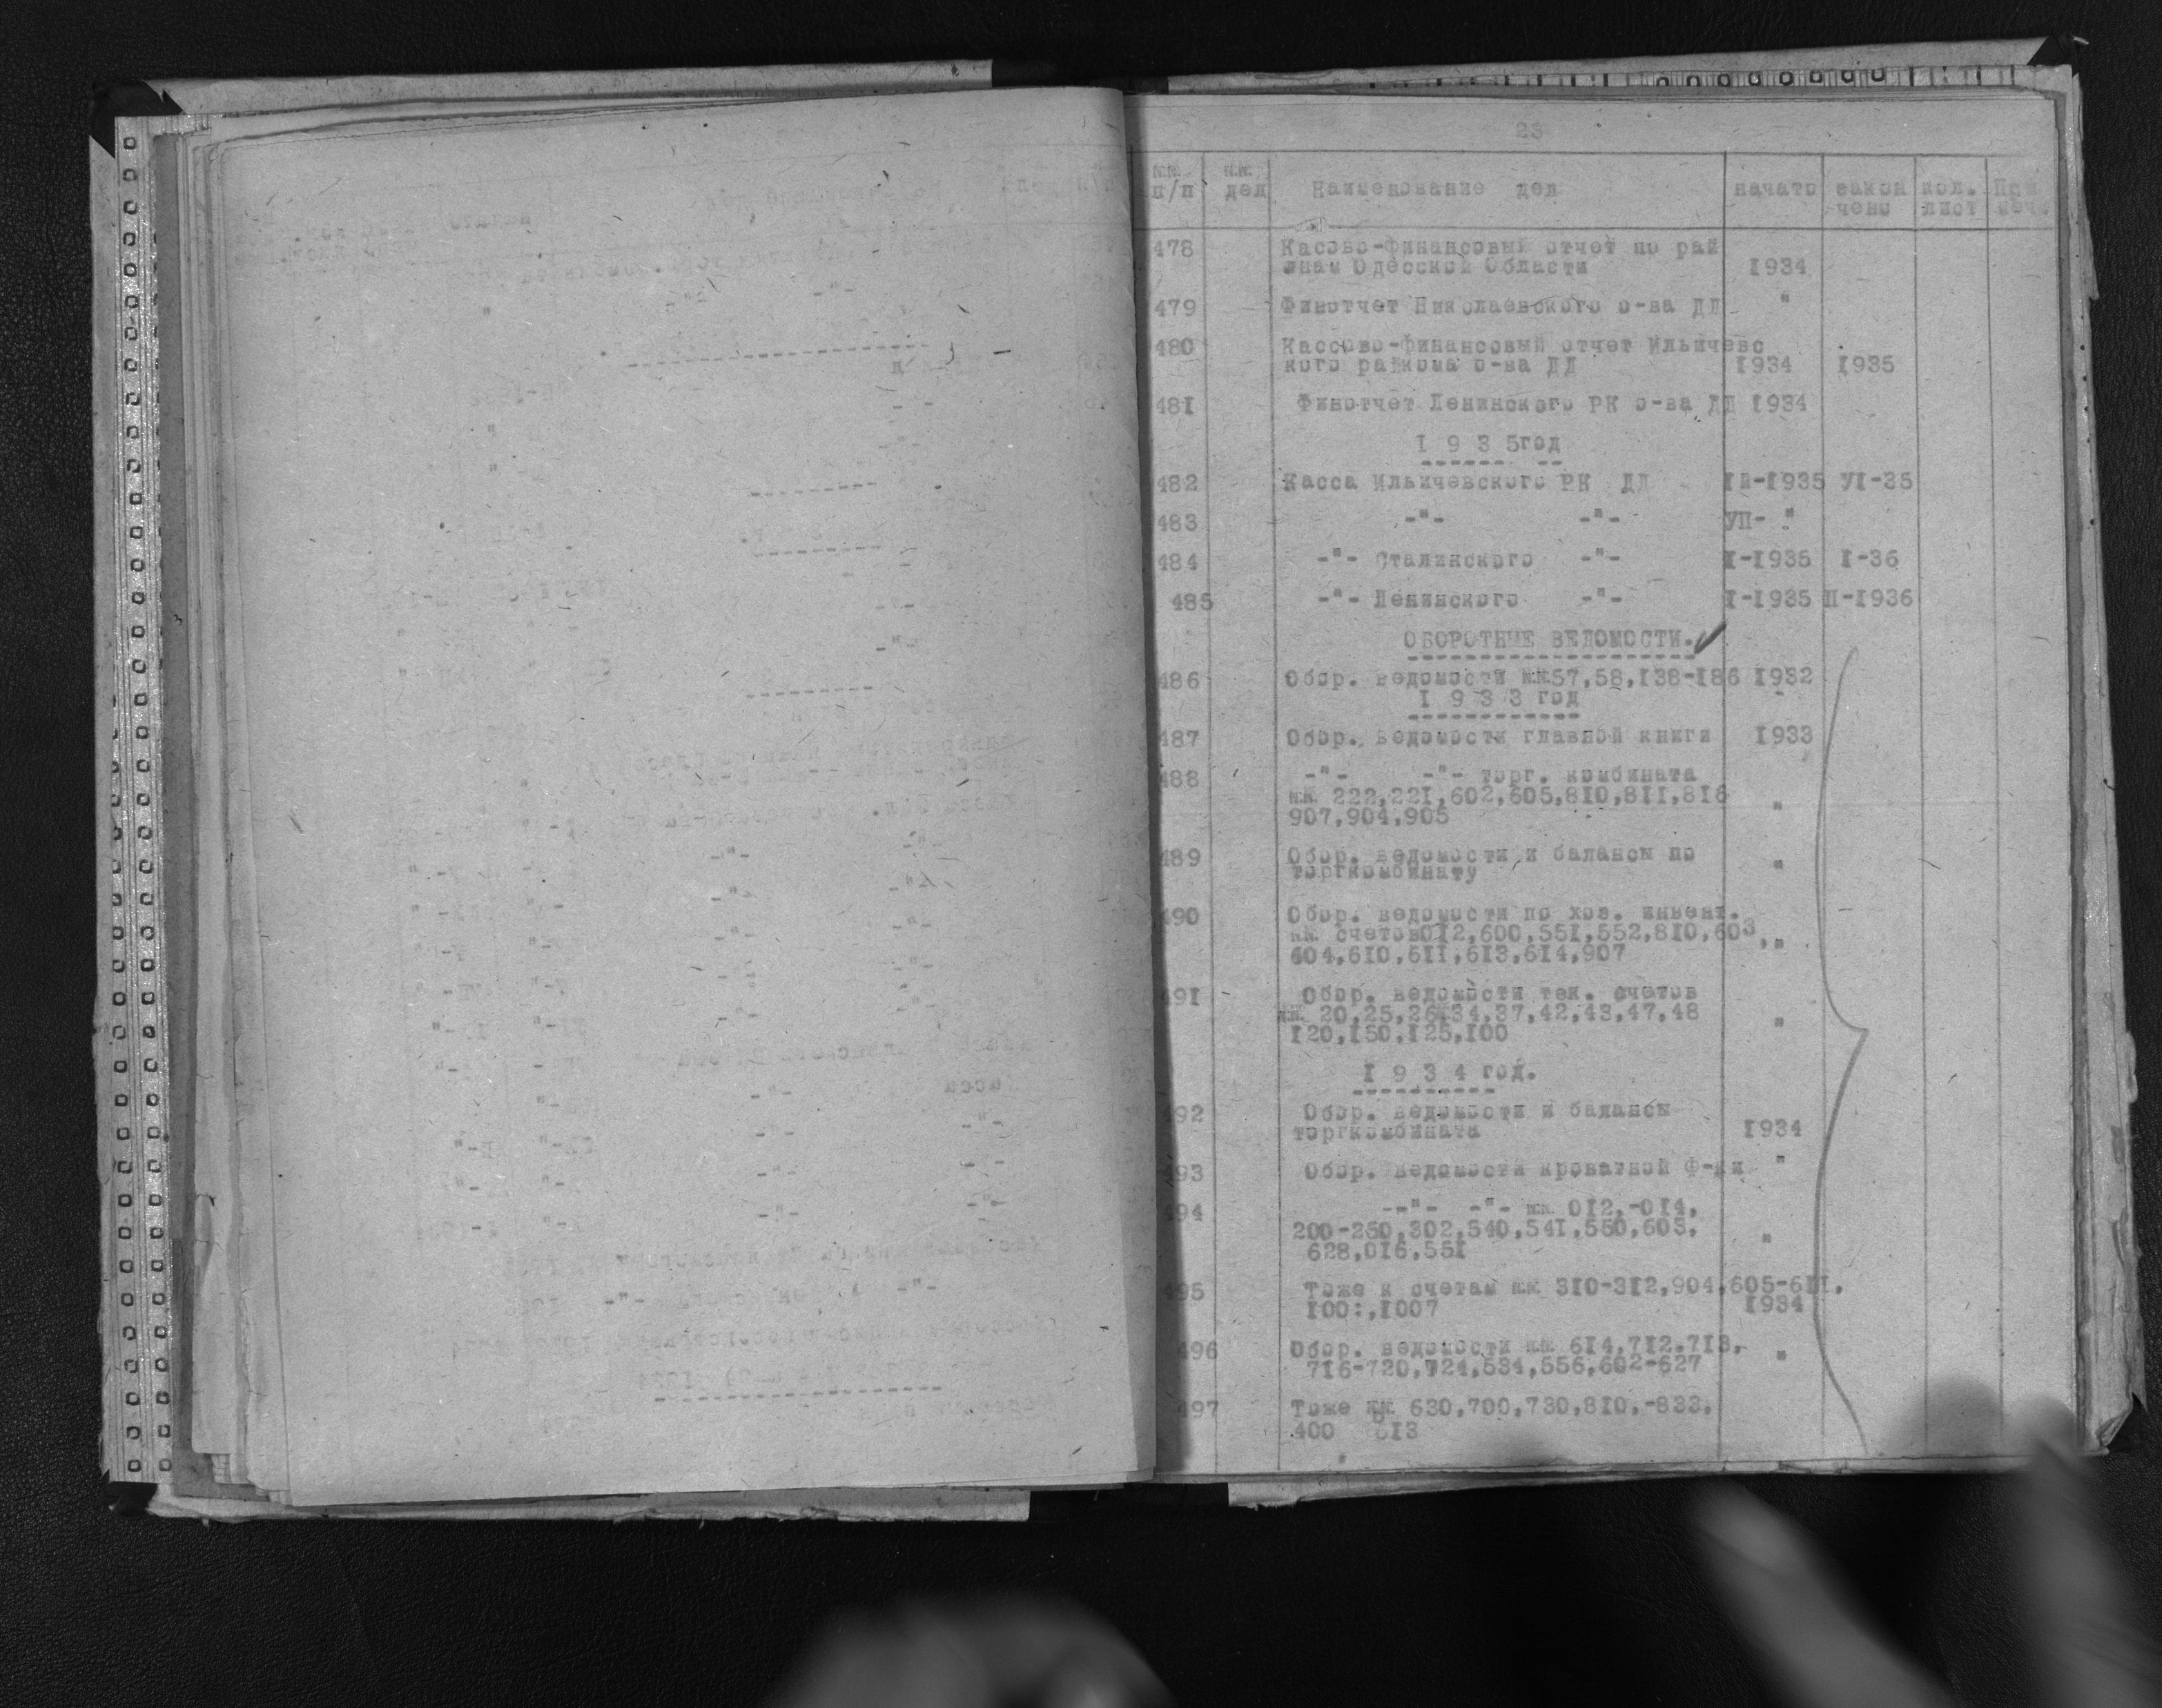 23
№№ п/п №№ дел Наименование дел начато закон кол. При
чено лист меч.
478 Касово-финансовый отчет по рай
онам Одесской Области 1934
479 Финотчет Николаевского о-ва ДД "
480 Кассово-финансовый отчет Ильичевс
кого райкома о-ва ДД 1934 1935
481 Финотчет Ленинского РК о-ва ДД 1934
I 9 3 5год
482 Касса Ильичевского РК ДД IП-1935 УI-35
483 -"- -"- УП- "
484 -"- Сталинского -"- I-1935 I-36
485 -"- Ленинского -"- I-1935 П-1936
ОБОРОТНЫЕ ВЕДОМОСТИ.
486 Обор. ведомости №№57,58,138-186 1932
I 9 3 3 год
487 Обор. ведомости главной книги 1933
488 -"- -"- торг. комбината
№№ 222,221,602,605,810,811,816 "
907,904,905
489 Обор. ведомости и балансы по
торгкомбинату "
490 Обор. ведомости по хоз. инвент.
№№ счетов012,600,551,552,810,603,
604,610,611,613,614,907 "
491 Обор. ведомости тек. счетов
№№ 20,25,26,34,37,42,43,47,48 "
120,150,125,100
I 9 3 4 год.
492 Обор. ведомости и балансы
торгкомбината 1934
493 Обор. ведомости кроватной Ф-ки "
494 --"- -"- №№ 012,-014,
200-250,302,540,541,550,603, "
628,016,551
495 Тоже к счетам №№ 310-312,904,605-611,
100:,1007 1934
496 Обор. ведомости №№ 614,712,713,
716-720,724,534,556,602-627 "
497 Тоже №№ 630,700,730,810,-833,
400 813